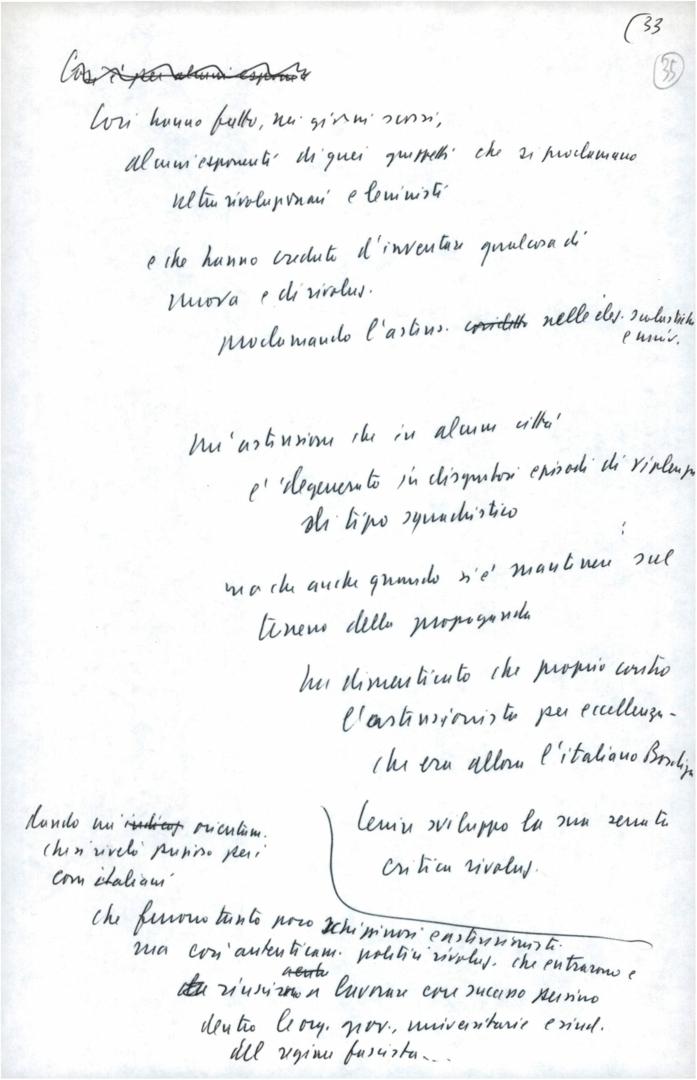 (33
35
Così è per alcuni esponenti
Così hanno fatto, nei giorni scorsi,
alcuni esponenti di quei gruppetti che si proclamano
ultrarivoluzionari e leninisti
e che hanno creduto d'inventare qualcosa di
nuovo e di rivoluz.
proclamando l'astens. nelle elez. scolastiche
e univ.
Un'astensione che in alcune città
è degenerata in disgustosi episodi di violenza
di tipo squadristico
ma che anche quando si è mantenuta sul
terreno della propaganda
ha dimenticato che proprio contro
l'astensionista per eccellenza -
che era allora l'italiano Bordiga
Lenin sviluppò la sua serrata
critica rivoluz.
dando un' orientam.
che si rivelò prezioso per i
com italiani
che furono tanto poco schizzinosi e astensionisti
ma così autenticam. politici rivoluz. che entrarono e
riuscirono a lavorare con successo persino
dentro le org. giov., universitarie e sind.
del regime fascista...